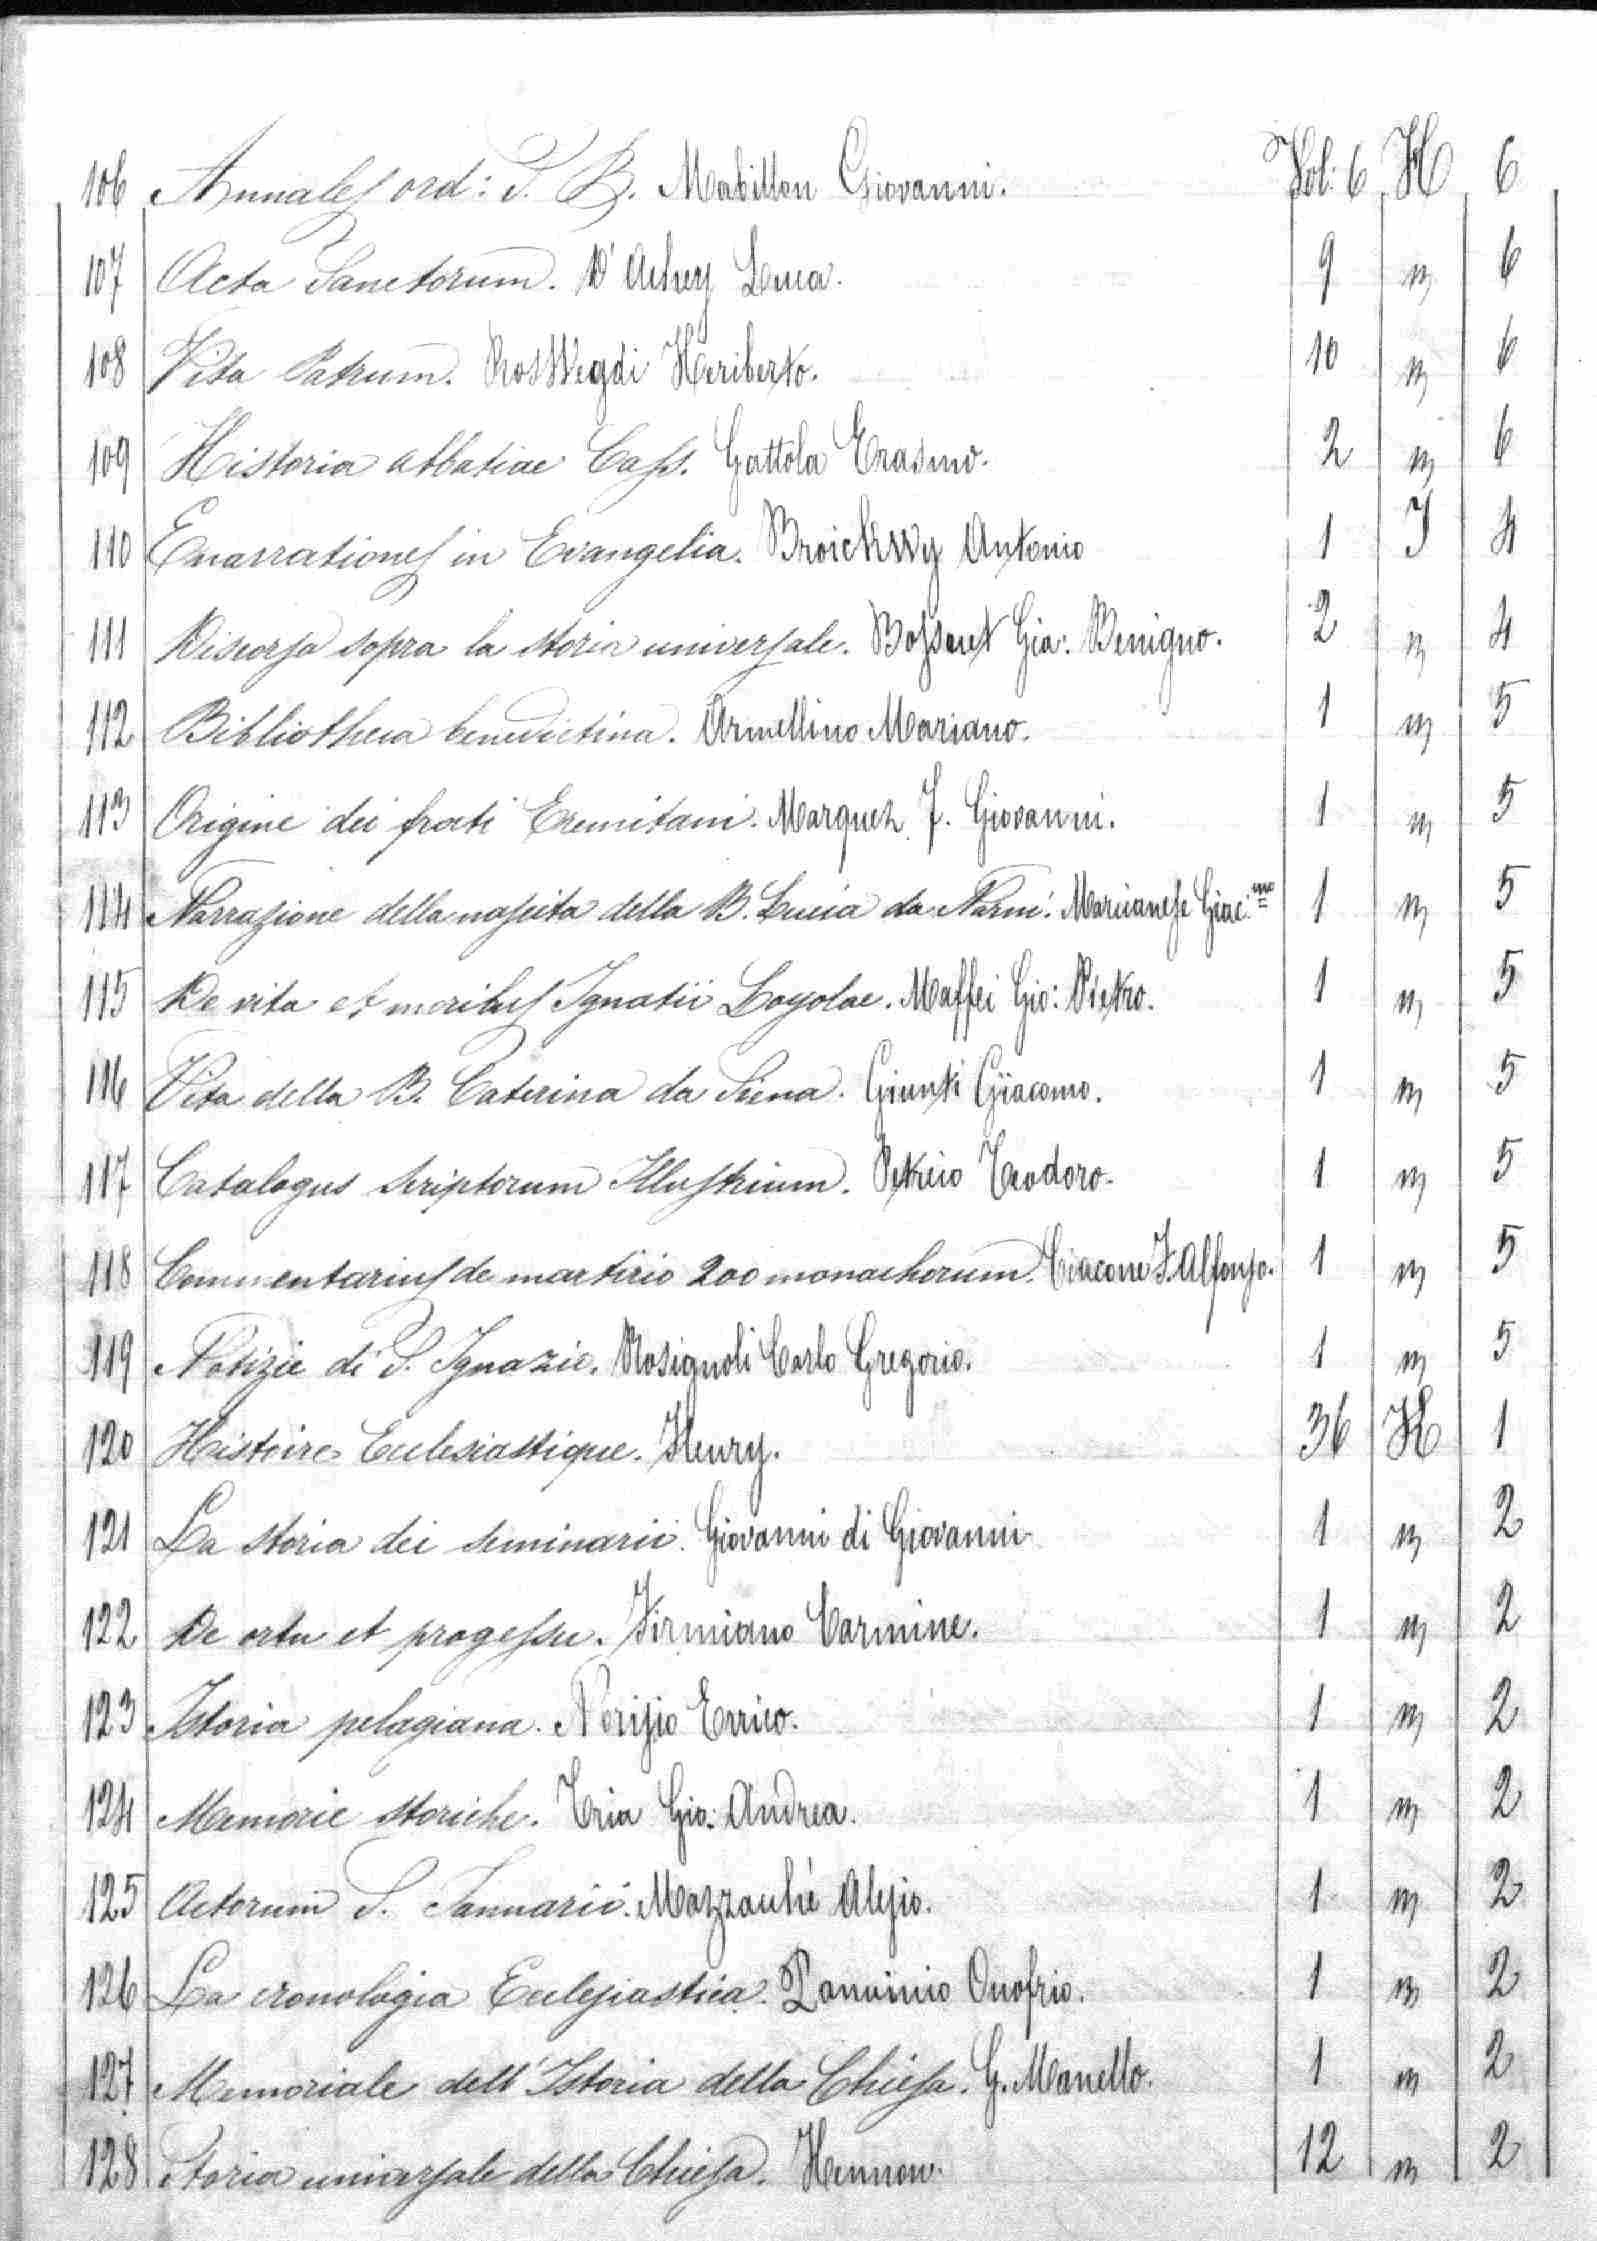 106 Annales ord: S. B. Mabillon Giovanni. Vol: 6 H 6
107 Acta Sanctorum. D'Achery Luca. 9 m 6
108 Vita Patrum. RosWegdi Heriberto. 10 m 6
109 Historia abbatiae Cass. Gattola Erasmo. 2 m 6
110 Enarrationes in Evangelia. Broickwy Antonio 1 I 4
111 Discorso sopra la storia universale. Bossuet Gia: Benigno. 2 m 4
112 Bibliotheca benedictina. Armellino Mariano. 1 m 5
113 Origine dei frati Eremitani. Marquez F. Giovanni. 1 m 5
114 Narrazione della nascita della B. Lucia da Narni. Marcianese Giac.mo 1 m 5
115 De vita et moribus Ignatii Loyolae. Maffei Gio: Pietro. 1 m 5
116 Vita della B. Caterina da Siena. Giunti Giacomo. 1 m 5
117 Catalogus scriptorum Illustrium. Petreio Teodoro. 1 m 5
118 Commentarius de martirio 200 monachorum. Ciacone F. Alfonso. 1 m 5
119 Notizie di S. Ignazio. Rosignoli Carlo Gregorio. 1 m 5
120 Histoire Eclesiastique. Fleury. 36 H 1
121 La storia dei seminarii. Giovanni di Giovanni 1 m 2
122 De ortu et progessu. Firmiano Carmine. 1 m 2
123 Istoria pelagiana. Norisio Errico. 1 m 2
124 Memorie storiche. Tria Gio: Andrea. 1 m 2
125 Actorum S. Januarii. Mazzocchi Alesio. 1 m 2
126 La cronologia Eclesiastica. Panvinio Onofrio. 1 m 2
127 Memoriale dell'Istoria della Chiesa. G. Manello. 1 m 2
128 Storia universale della Chiesa. Hennon. 12 m 2